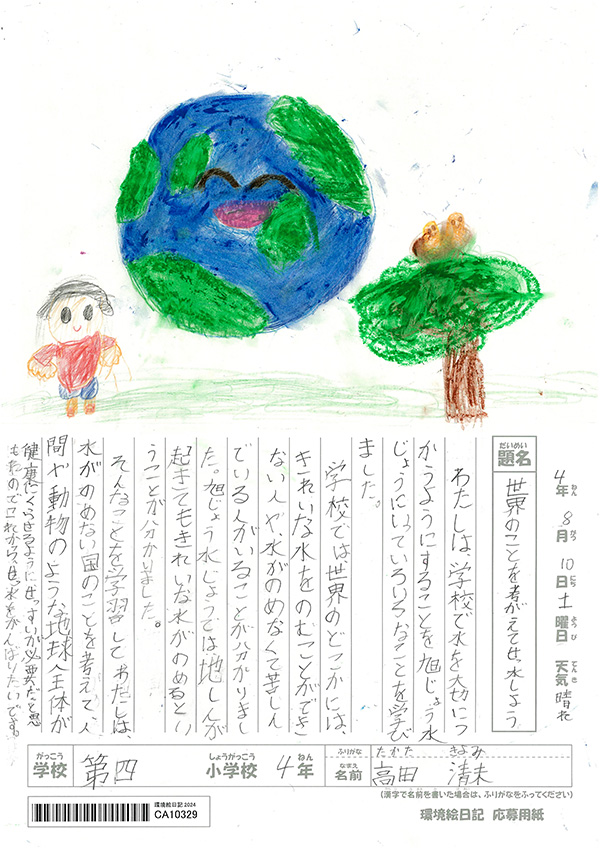 4年 8月 10日 土曜日 天気 晴れ
ねん がつ にち ようび てんき
だいめい
題名
世界のことを考がえてせっ水しよう
わたしは、学校で水を大切につ
かうようにすることを旭じょう水
じょうにいっていろいろなことを学び
ました。
学校では世界のどこかには、
きれいな水をのむことができ
ない人や、水がのめなくて苦しん
でいる人がいることが分かりまし
た。旭じょう水じょうでは地しんが
起きてもきれいな水がのめるとい
うことが分かりました。
そんなことを学習してわたしは、
水がのめない国のことを考えて、人
間や動物のような地球全体が
健康にくらせるようにせっすいが必要だと思
もたのでこれから、せっ水をがんばりたいです。
がっこう
学校
第四
しょうがっこう
小学校
4年
ねん
ふりがな
たかた きよみ
なまえ
名前
高田 清未
(漢字で名前を書いた場合は、ふりがなをふってください)
環境絵日記2024
CA10329
環境絵日記 応募用紙